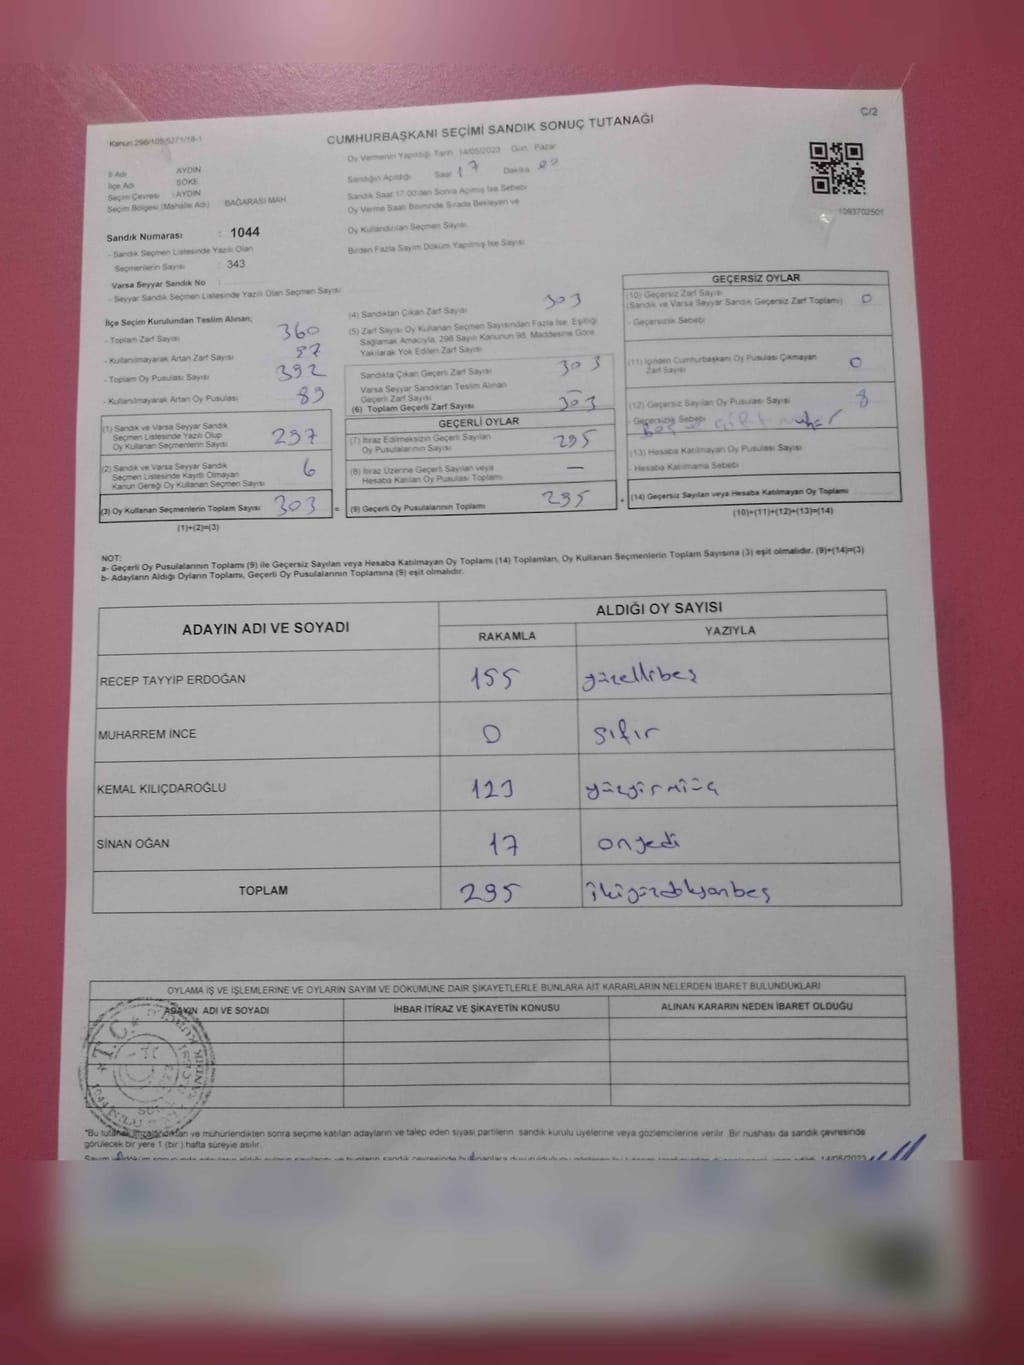 C/2
Kanun:298/105/6271/18-1
CUMHURBAŞKANI SEÇİMİ SANDIK SONUÇ TUTANAĞI
İl Adı AYDIN
İlçe Adı SÖKE
Seçim Çevresi : AYDIN
Seçim Bölgesi (Mahalle Adı) BAĞARASI MAH.
Oy Vermenin Yapıldığı Tarih 14/05/2023 Gün. Pazar
Sandığın Açıldığı Saat 17 Dakika 00
Sandık Saat 17:00'den Sonra Açılmış İse Sebebi
Oy Verme Saati Bitiminde Sırada Bekleyen ve
Oy Kullandırılan Seçmen Sayısı
Birden Fazla Sayım Döküm Yapılmış İse Sayısı
1093702501
Sandık Numarası : 1044
- Sandık Seçmen Listesinde Yazılı Olan
Seçmenlerin Sayısı : 343
Varsa Seyyar Sandık No :
- Seyyar Sandık Seçmen Listesinde Yazılı Olan Seçmen Sayısı
İlçe Seçim Kurulundan Teslim Alınan;
- Toplam Zarf Sayısı 360
- Kullanılmayarak Artan Zarf Sayısı
- Toplam Oy Pusulası Sayısı 392
- Kullanılmayarak Artan Oy Pusulası 89
(1) Sandık ve Varsa Seyyar Sandık
Seçmen Listesinde Yazılı Olup
Oy Kullanan Seçmenlerin Sayısı 297
(2) Sandık ve Varsa Seyyar Sandık
Seçmen Listesinde Kayıtlı Olmayan
Kanun Gereği Oy Kullanan Seçmen Sayısı 6
(3) Oy Kullanan Seçmenlerin Toplam Sayısı 303 =
(1)+(2)=(3)
(4) Sandıktan Çıkan Zarf Sayısı 303
(5) Zarf Sayısı Oy Kullanan Seçmen Sayısından Fazla İse, Eşitliği
Sağlamak Amacıyla, 298 Sayılı Kanunun 98. Maddesine Göre
Yakılarak Yok Edilen Zarf Sayısı
Sandıkta Çıkan Geçerli Zarf Sayısı 303
Varsa Seyyar Sandıktan Teslim Alınan
Geçerli Zarf Sayısı —
(6) Toplam Geçerli Zarf Sayısı 303
GEÇERLİ OYLAR
(7) İtiraz Edilmeksizin Geçerli Sayılan
Oy Pusulasının Sayısı 295
(8) İtiraz Üzerine Geçerli Sayılan veya
Hesaba Katılan Oy Pusulası Toplamı —
(9) Geçerli Oy Pusulalarının Toplamı 295 +
GEÇERSİZ OYLAR
(10) Geçersiz Zarf Sayısı
(Sandık ve Varsa Seyyar Sandık Geçersiz Zarf Toplamı) 0
- Geçersizlik Sebebi
(11) İçinden Cumhurbaşkanı Oy Pusulası Çıkmayan
Zarf Sayısı 0
(12) Geçersiz Sayılan Oy Pusulası Sayısı 8
- Geçersizlik Sebebi
(13) Hesaba Katılmayan Oy Pusulası Sayısı
- Hesaba Katılmama Sebebi
(14) Geçersiz Sayılan veya Hesaba Katılmayan Oy Toplamı
(10)+(11)+(12)+(13)=(14)
NOT:
a- Geçerli Oy Pusulalarının Toplamı (9) ile Geçersiz Sayılan veya Hesaba Katılmayan Oy Toplamı (14) Toplamları, Oy Kullanan Seçmenlerin Toplam Sayısına (3) eşit olmalıdır. (9)+(14)=(3)
b- Adayların Aldığı Oyların Toplamı, Geçerli Oy Pusulalarının Toplamına (9) eşit olmalıdır.
ADAYIN ADI VE SOYADI ALDIĞI OY SAYISI
RAKAMLA YAZIYLA
RECEP TAYYİP ERDOĞAN 155 yüzellibeş
MUHARREM İNCE 0 sıfır
KEMAL KILIÇDAROĞLU 123 yüzyirmiüç
SİNAN OĞAN 17 onyedi
TOPLAM 295 ikiyüzdoksanbeş
OYLAMA İŞ VE İŞLEMLERİNE VE OYLARIN SAYIM VE DÖKÜMÜNE DAİR ŞİKAYETLERLE BUNLARA AİT KARARLARIN NELERDEN İBARET BULUNDUKLARI
ADAYIN ADI VE SOYADI İHBAR İTİRAZ VE ŞİKAYETİN KONUSU ALINAN KARARIN NEDEN İBARET OLDUĞU
T.C.
*Bu tutanak imzalandıktan ve mühürlendikten sonra seçime katılan adayların ve talep eden siyasi partilerin sandık kurulu üyelerine veya gözlemcilerine verilir. Bir nüshası da sandık çevresinde
görülecek bir yere 1 (bir) hafta süreyle asılır.